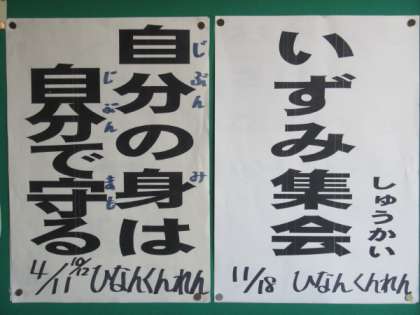 自分の身は
じぶん み
自分で守る
じぶん まも
4/11 10/12 ひなんくんれん
いずみ集会
しゅうかい
11/18 ひなんくんれん